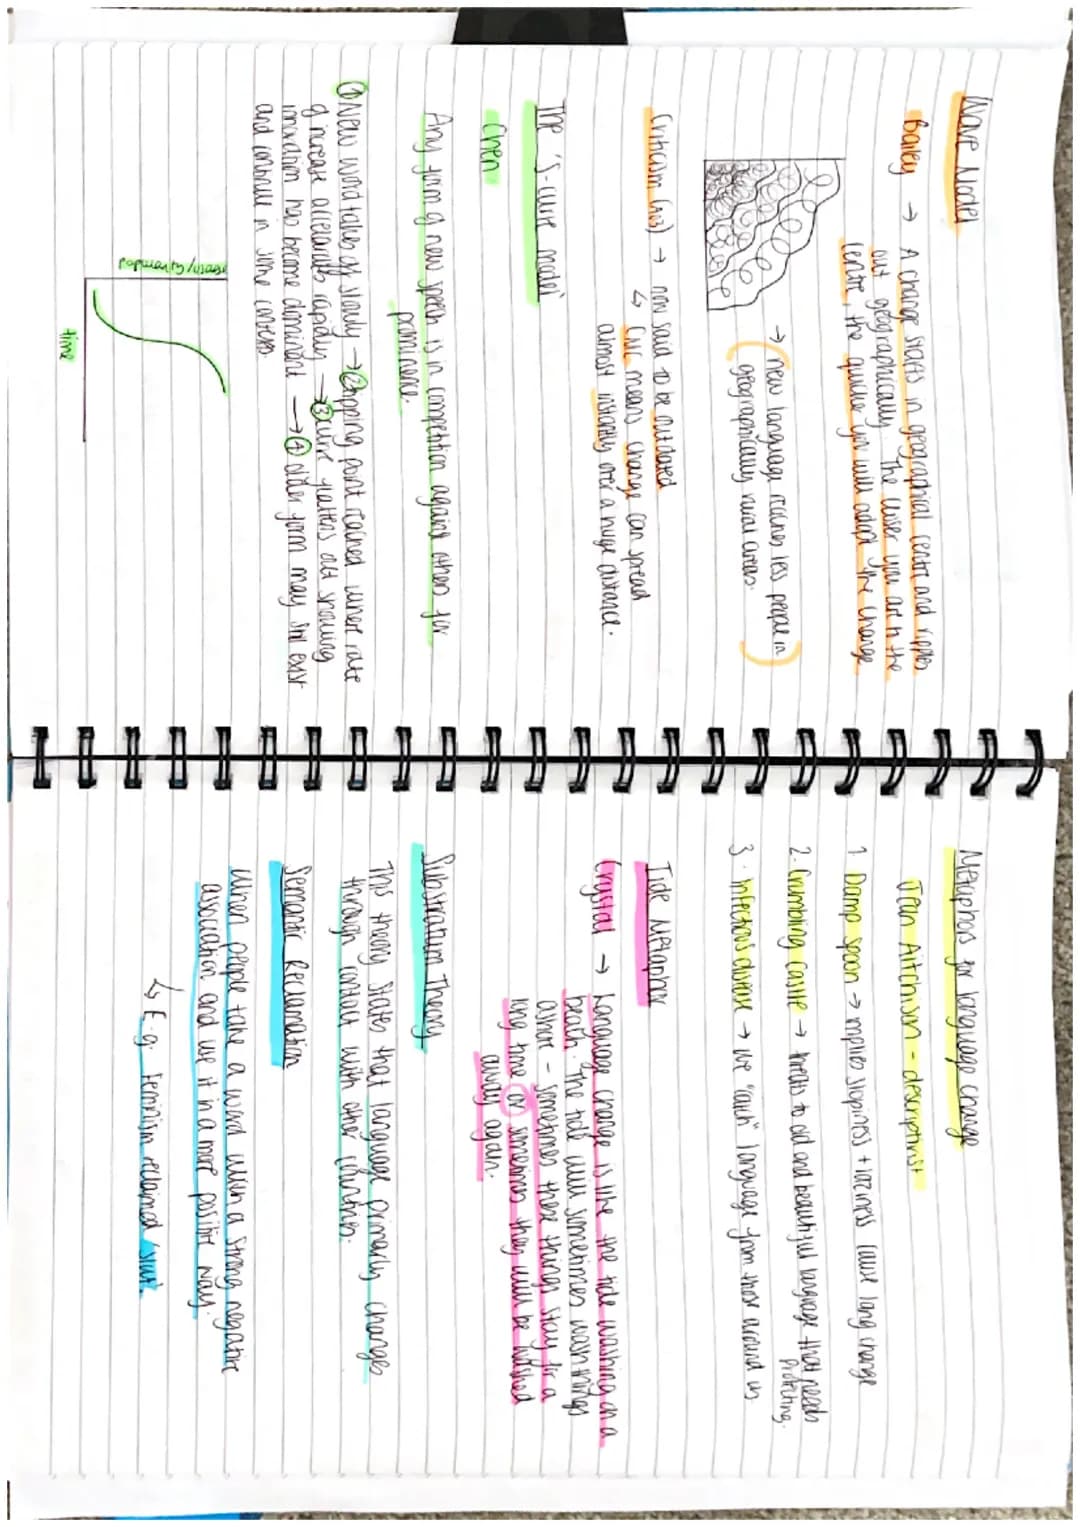 Wave Model
Bailey → A change starts in geographical centre and ripples
out geographically. The closer you are to the
centre, the quicker you will adopt the change
→ (new language reaches less people in
geographically rural areas.)
Criticism (AO3) → now said to be outdated
↳ CMC means change can spread
almost instantly over a huge distance.
The 'S-curve model'
Chen
Any form of new speech is in competition against others for
prominence.
① New word takes off slowly → ② tipping point reached where rate
of increase accelerates rapidly → ③ curve flattens out showing
innovation has become dominant → ④ older form may still exist
and contrast in some contexts
popularity/usage
time
Metaphors for language change
Jean Aitchison - descriptivist
1 Damp spoon → implies slopiness + laziness cause lang change
2. Crumbling castle → treats to old and beautiful language that needs
protecting.
3. Infectious disease → we "catch" language from those around us
Tide Metaphor
Crystal → Language change is like the tide washing on a
beach. The tide will sometimes wash things
ashore - sometimes these things stay for a
long time or sometimes they will be washed
away again.
Substratum Theory
This theory states that language primarily changes
through contact with other countries.
Semantic Reclamation
When people take a word with a strong negative
association and use it in a more positive way.
↳ E.g. Feminism reclaimed 'slut'